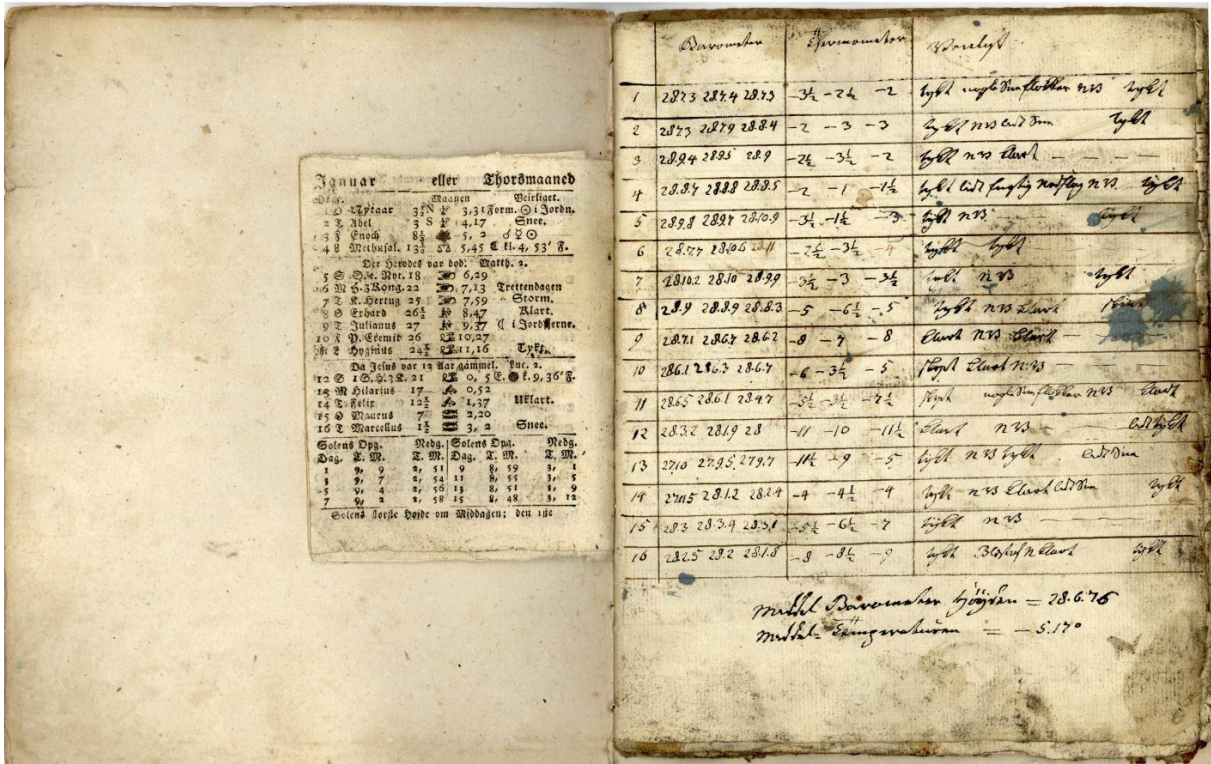 Januar eller Thorsmaaned
Maanen Veirliget.
1 O Nytaar 3½ N 3,31 Form. ☉ i Jordn.
2 T Abel 3 S 4,17 Snee.
3 F Enoch 8½ 5, 2 ☌ ☿ ☉
4 L Methusal. 13½ 5,45 ☾ kl. 4, 53' F.
Der Herodes var död. Matth. 2.
5 S S.e. Nyt. 18 6,29
6 M H. 3 Kong. 22 7,13 Trettendagen
7 T K. Hertug 25 7,59 Storm.
8 O Erhard 26½ 8,47 Klart.
9 T Julianus 27 9,37 ☾ i Jordfierne.
10 F P. Eremit 26 10,27
11 L Hyginus 24½ 11,16 Tykt.
Da Jesus var 12 Aar gammel. Luc. 2.
12 S 1 S. H. 3 K. 21 0, 5 E. k. 9, 36' F.
13 M Hilarius 17 0,52
14 T Felix 12½ 1,37 Uklart.
15 O Maurus 7 2,20
16 T Marcellus 1½ 3, 2 Snee.
Solens Opg. Nedg. Solens Opg. Nedg.
Dag. T. M. T. M. Dag. T. M. T. M.
1 9, 9 2, 51 9 8, 59 3, 1
3 9, 7 2, 54 11 8, 55 3, 5
5 9, 4 2, 56 13 8, 51 3, 9
7 9, 2 2, 58 15 8, 48 3, 12
Solens störste Höide om Middagen; den 1ste
Barometer Thermometer Veirligt
1 28.7.3 28.7.4 28.7.3 -3½ -2½ -2 tykt nogle Sneflokker NB tykt
2 28.7.3 28.7.9 28.8.4 -2 -3 -3 tykt NB lidt Snee tykt
3 28.9.4 28.9.5 28.9 -2½ -3½ -2 tykt NB Klart — — —
4 28.8.7 28.8.8 28.8.5 -2 -1 -1½ tykt lidt fugtig Nedslag NB tykt
5 28.9.8 28.9.7 28.10.9 -3½ -1½ -3 tykt NB tykt
6 28.7.7 28.10.6 28.11 -2½ -3½ -4 tykt tykt
7 28.10.2 28.10 28.9.9 -3½ -3 -3½ tykt NB tykt
8 28.9 28.8.9 28.8.3 -5 -6½ -5 tykt NB Klart
9 28.7.1 28.6.7 28.6.2 -8 -7 -8 Klart NB Klart
10 28.6.1 28.6.3 28.6.7 -6 -3½ -5 Skyet Klart NB —
11 28.6.5 28.6.1 28.4.7 -5½ -3½ -7½ Skyet nogle Sneflokker NB Klart
12 28.3.2 28.1.9 28 -11 -10 -11½ Klart NB — lidt tykt
13 27.10 27.9.5 27.9.7 -11½ -9 -5 tykt NB tykt lidt Snee
14 27.11.5 28.1.2 28.2.4 -4 -4½ -4 tykt NB Klart lidt Snee tykt
15 28.3 28.3.4 28.3.1 -5½ -6½ -7 tykt NB — — —
16 28.2.5 28.2 28.1.8 -8 -8½ -9 tykt Klart tykt
Middel Barometer Höyden = 28.6.76
Middel Temperaturen = -5.17°